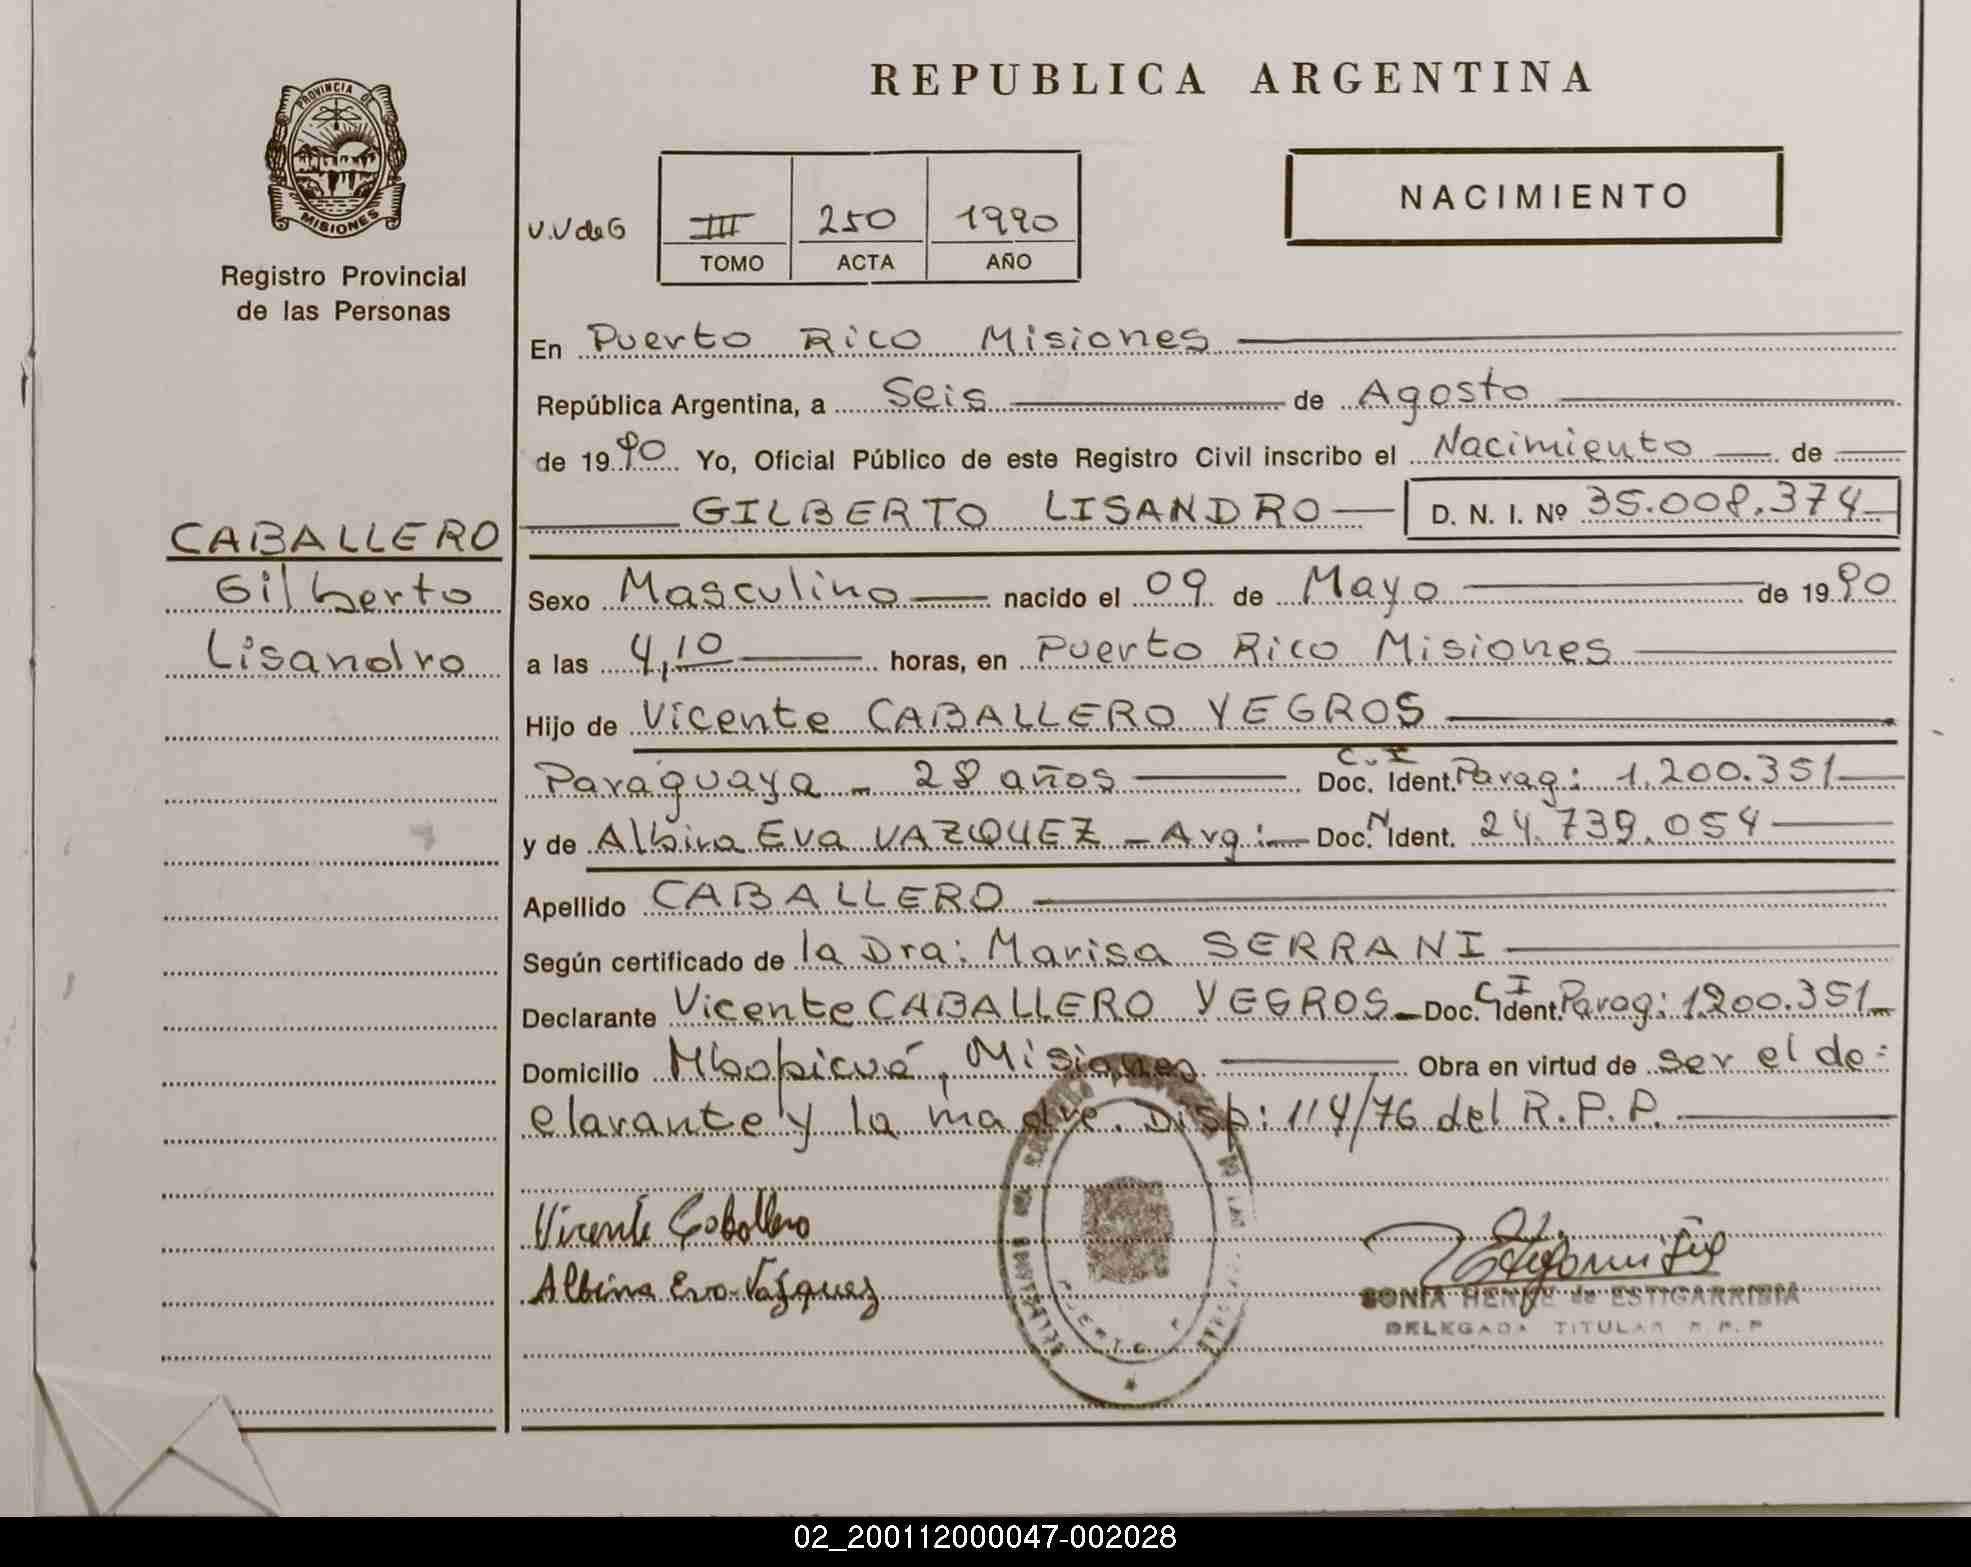 PROVINCIA DE
MISIONES
Registro Provincial
de las Personas
CABALLERO
Gilberto
Lisandro
REPUBLICA ARGENTINA
NACIMIENTO
V.V de G
III 250 1990
TOMO ACTA AÑO
En Puerto Rico Misiones
República Argentina, a Seis de Agosto
de 1990 Yo, Oficial Público de este Registro Civil inscribo el Nacimiento de
GILBERTO LISANDRO D. N. I. Nº 35.008.374
Sexo Masculino nacido el 09 de Mayo de 1990
a las 4,10 horas, en Puerto Rico Misiones
Hijo de Vicente CABALLERO YEGROS
Paraguaya - 28 años Doc. C.I Ident. Parag: 1.200.351
y de Albina Eva VAZQUEZ - Arg: Doc. N Ident. 24.739.054
Apellido CABALLERO
Según certificado de la Dra: Marisa SERRANI
Declarante Vicente CABALLERO YEGROS - Doc. C I Ident. Parag: 1200.351
Domicilio Mbopicuá, Misiones Obra en virtud de ser el de=
clarante y la madre. Disp: 114/76 del R.P.P.
Vicente Caballero
Albina Eva Vazquez
SONIA HENKE de ESTIGARRIBIA
DELEGADA TITULAR R.P.P
02_200112000047-002028